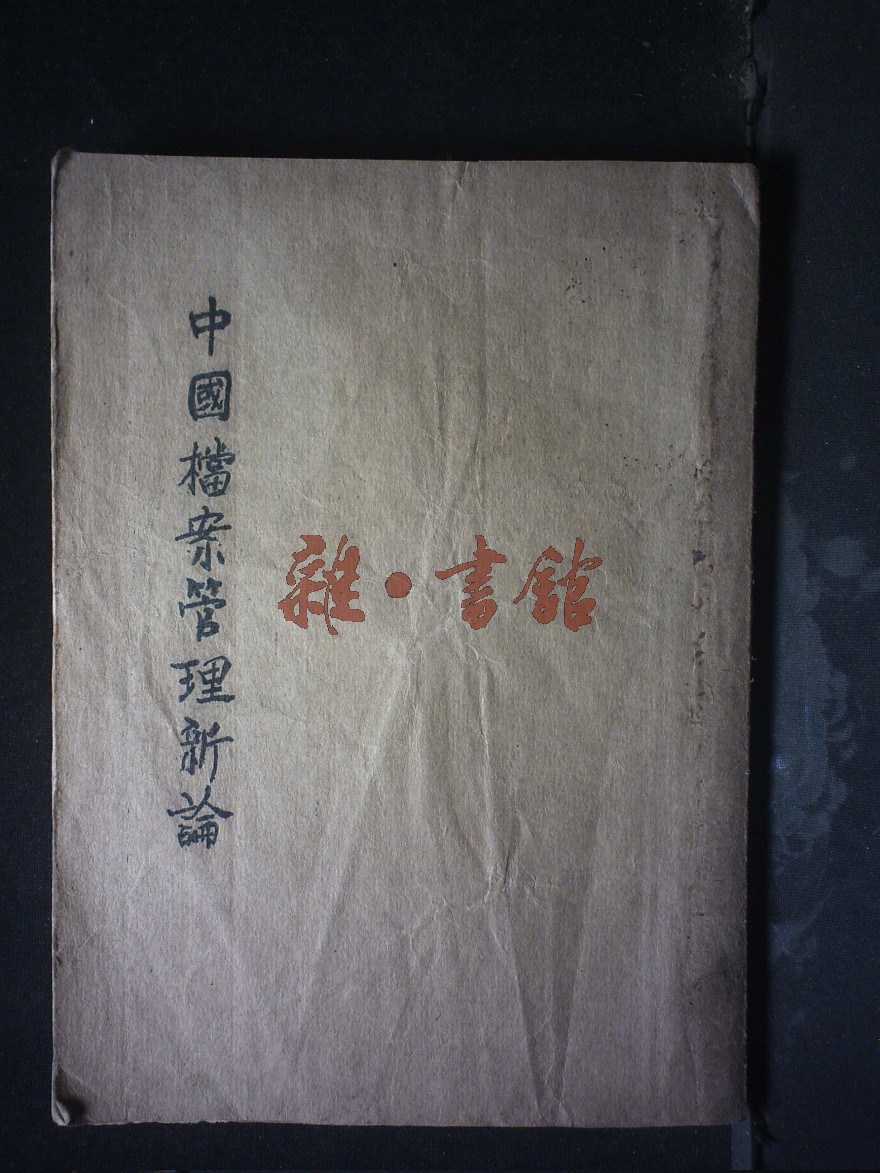 中國檔案管理新論
雜·書館